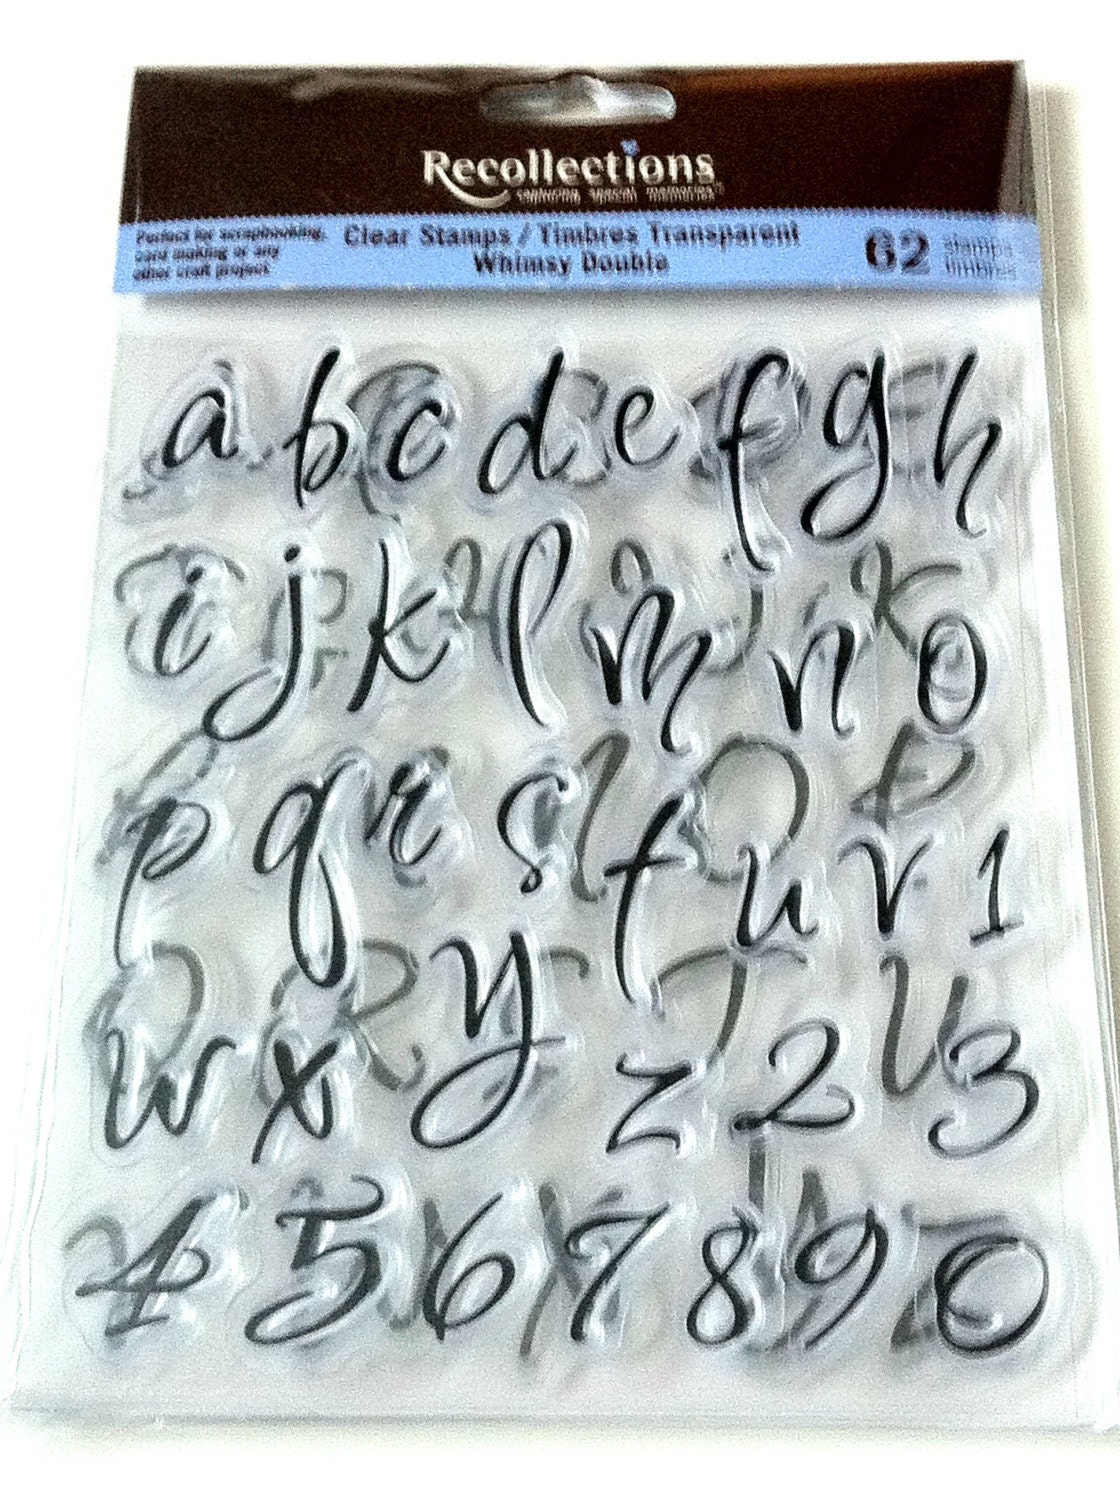 Recollections
capturing special memories
Perfect for scrapbooking,
card making or any
other craft project
Clear Stamps / Timbres Transparent
Whimsy Double
62 stamps
timbres
a b c d e f g h
i j k l m n o
p q r s t u v 1
w x y z 2 3
4 5 6 7 8 9 0